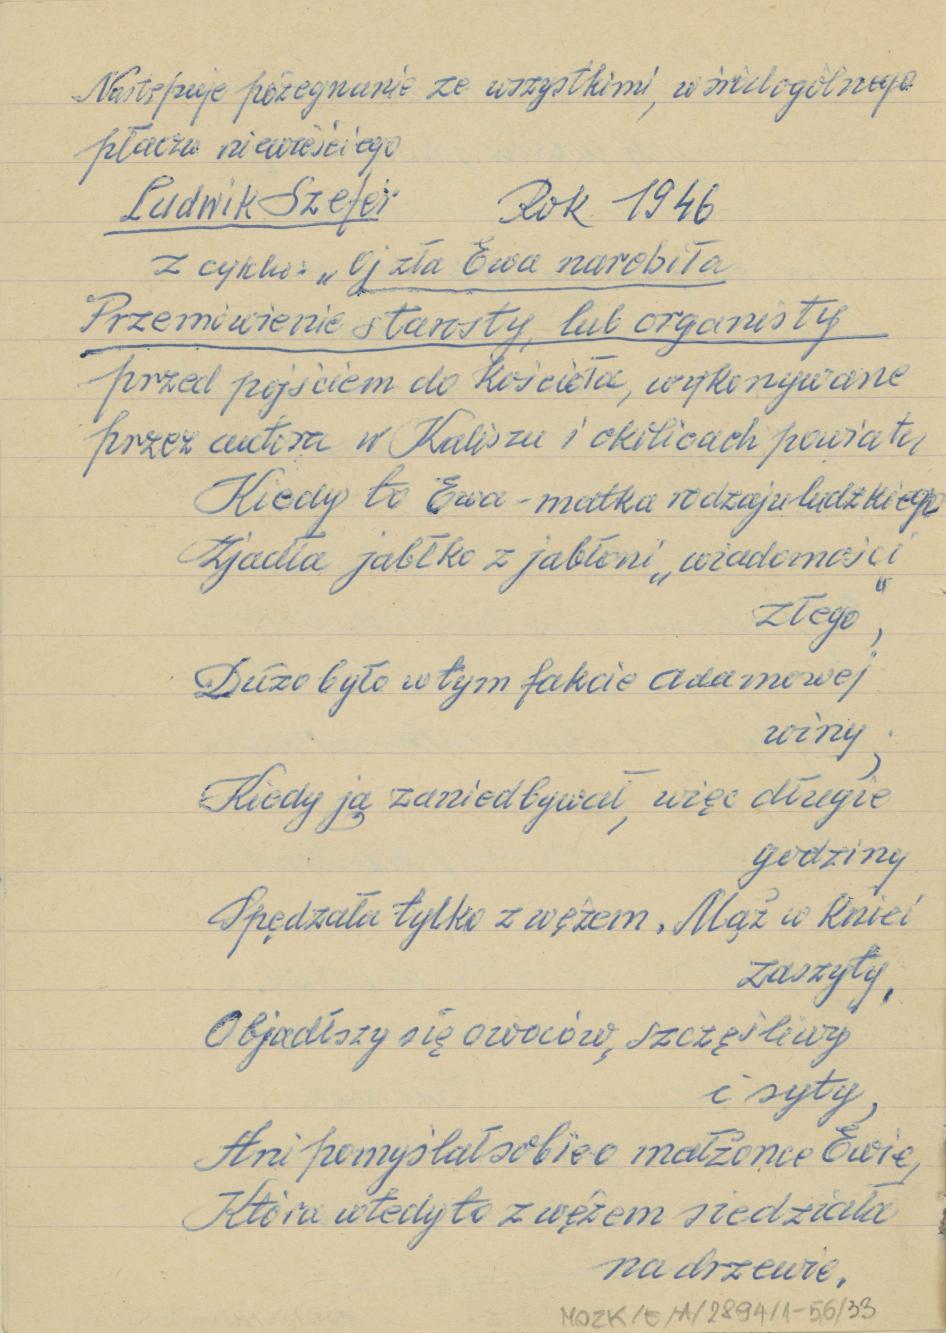 Następuje pożegnanie ze wszystkimi, wśród ogólnego
płaczu niewieściego
Ludwik Szefer Rok 1946
z cyklu: „Oj zła Ewa narobiła
Przemówienie starosty, lub organisty
przed pójściem do kościoła, wykonywane
przez autora w Kaliszu i okolicach powiatu
Kiedy to Ewa - matka rodzaju ludzkiego
Zjadła jabłko z jabłoni „wiadomości
złego",
Dużo było w tym fakcie adamowej
winy,
Kiedy ją zaniedbywał, więc długie
godziny
Spędzała tylko z wężem. Mąż w kniei
zaszyty,
Objadłszy się owoców, szczęśliwy
i syty,
Ani pomyślał sobie o małżonce Ewie,
Która wtedy to z wężem siedziała
na drzewie.
MOZK/E/A/2894/1-56/33